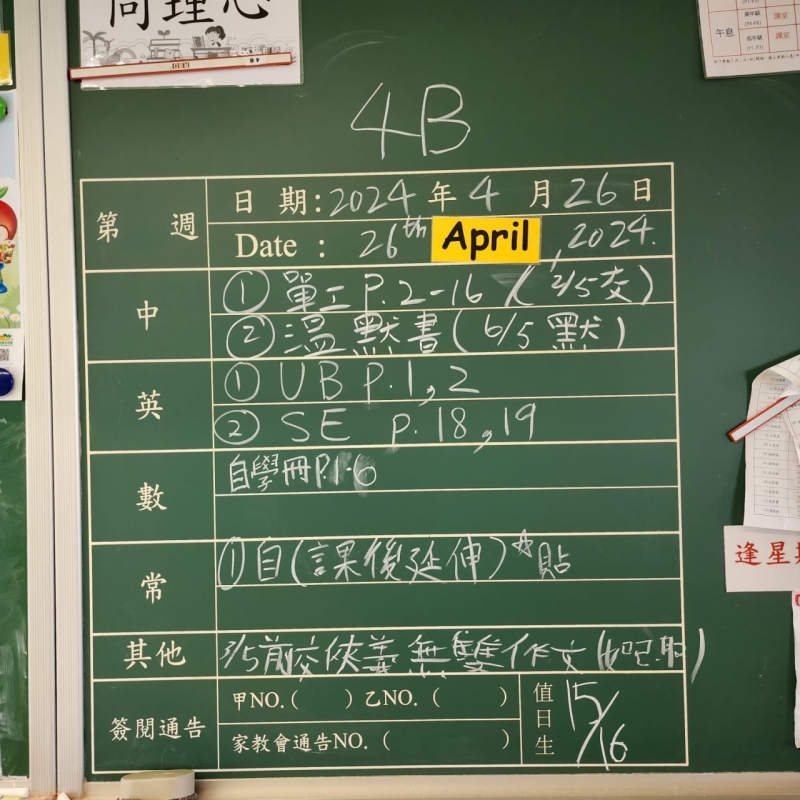 尚理心
午息
4B
第 週
日 期:2024年4月26日
Date : 26th April, 2024.
中
① 單工 P.2-16 (2/5交)
② 溫默書(6/5默)
英
① UB P.1,2
② SE p.18,19
數
自學冊P.1-6
常
①自(課後延伸)*貼
其他
前交俠義無雙作文
簽閱通告
甲NO.( ) 乙NO.( )
家教會通告NO.( )
值日生
15/16
逢星